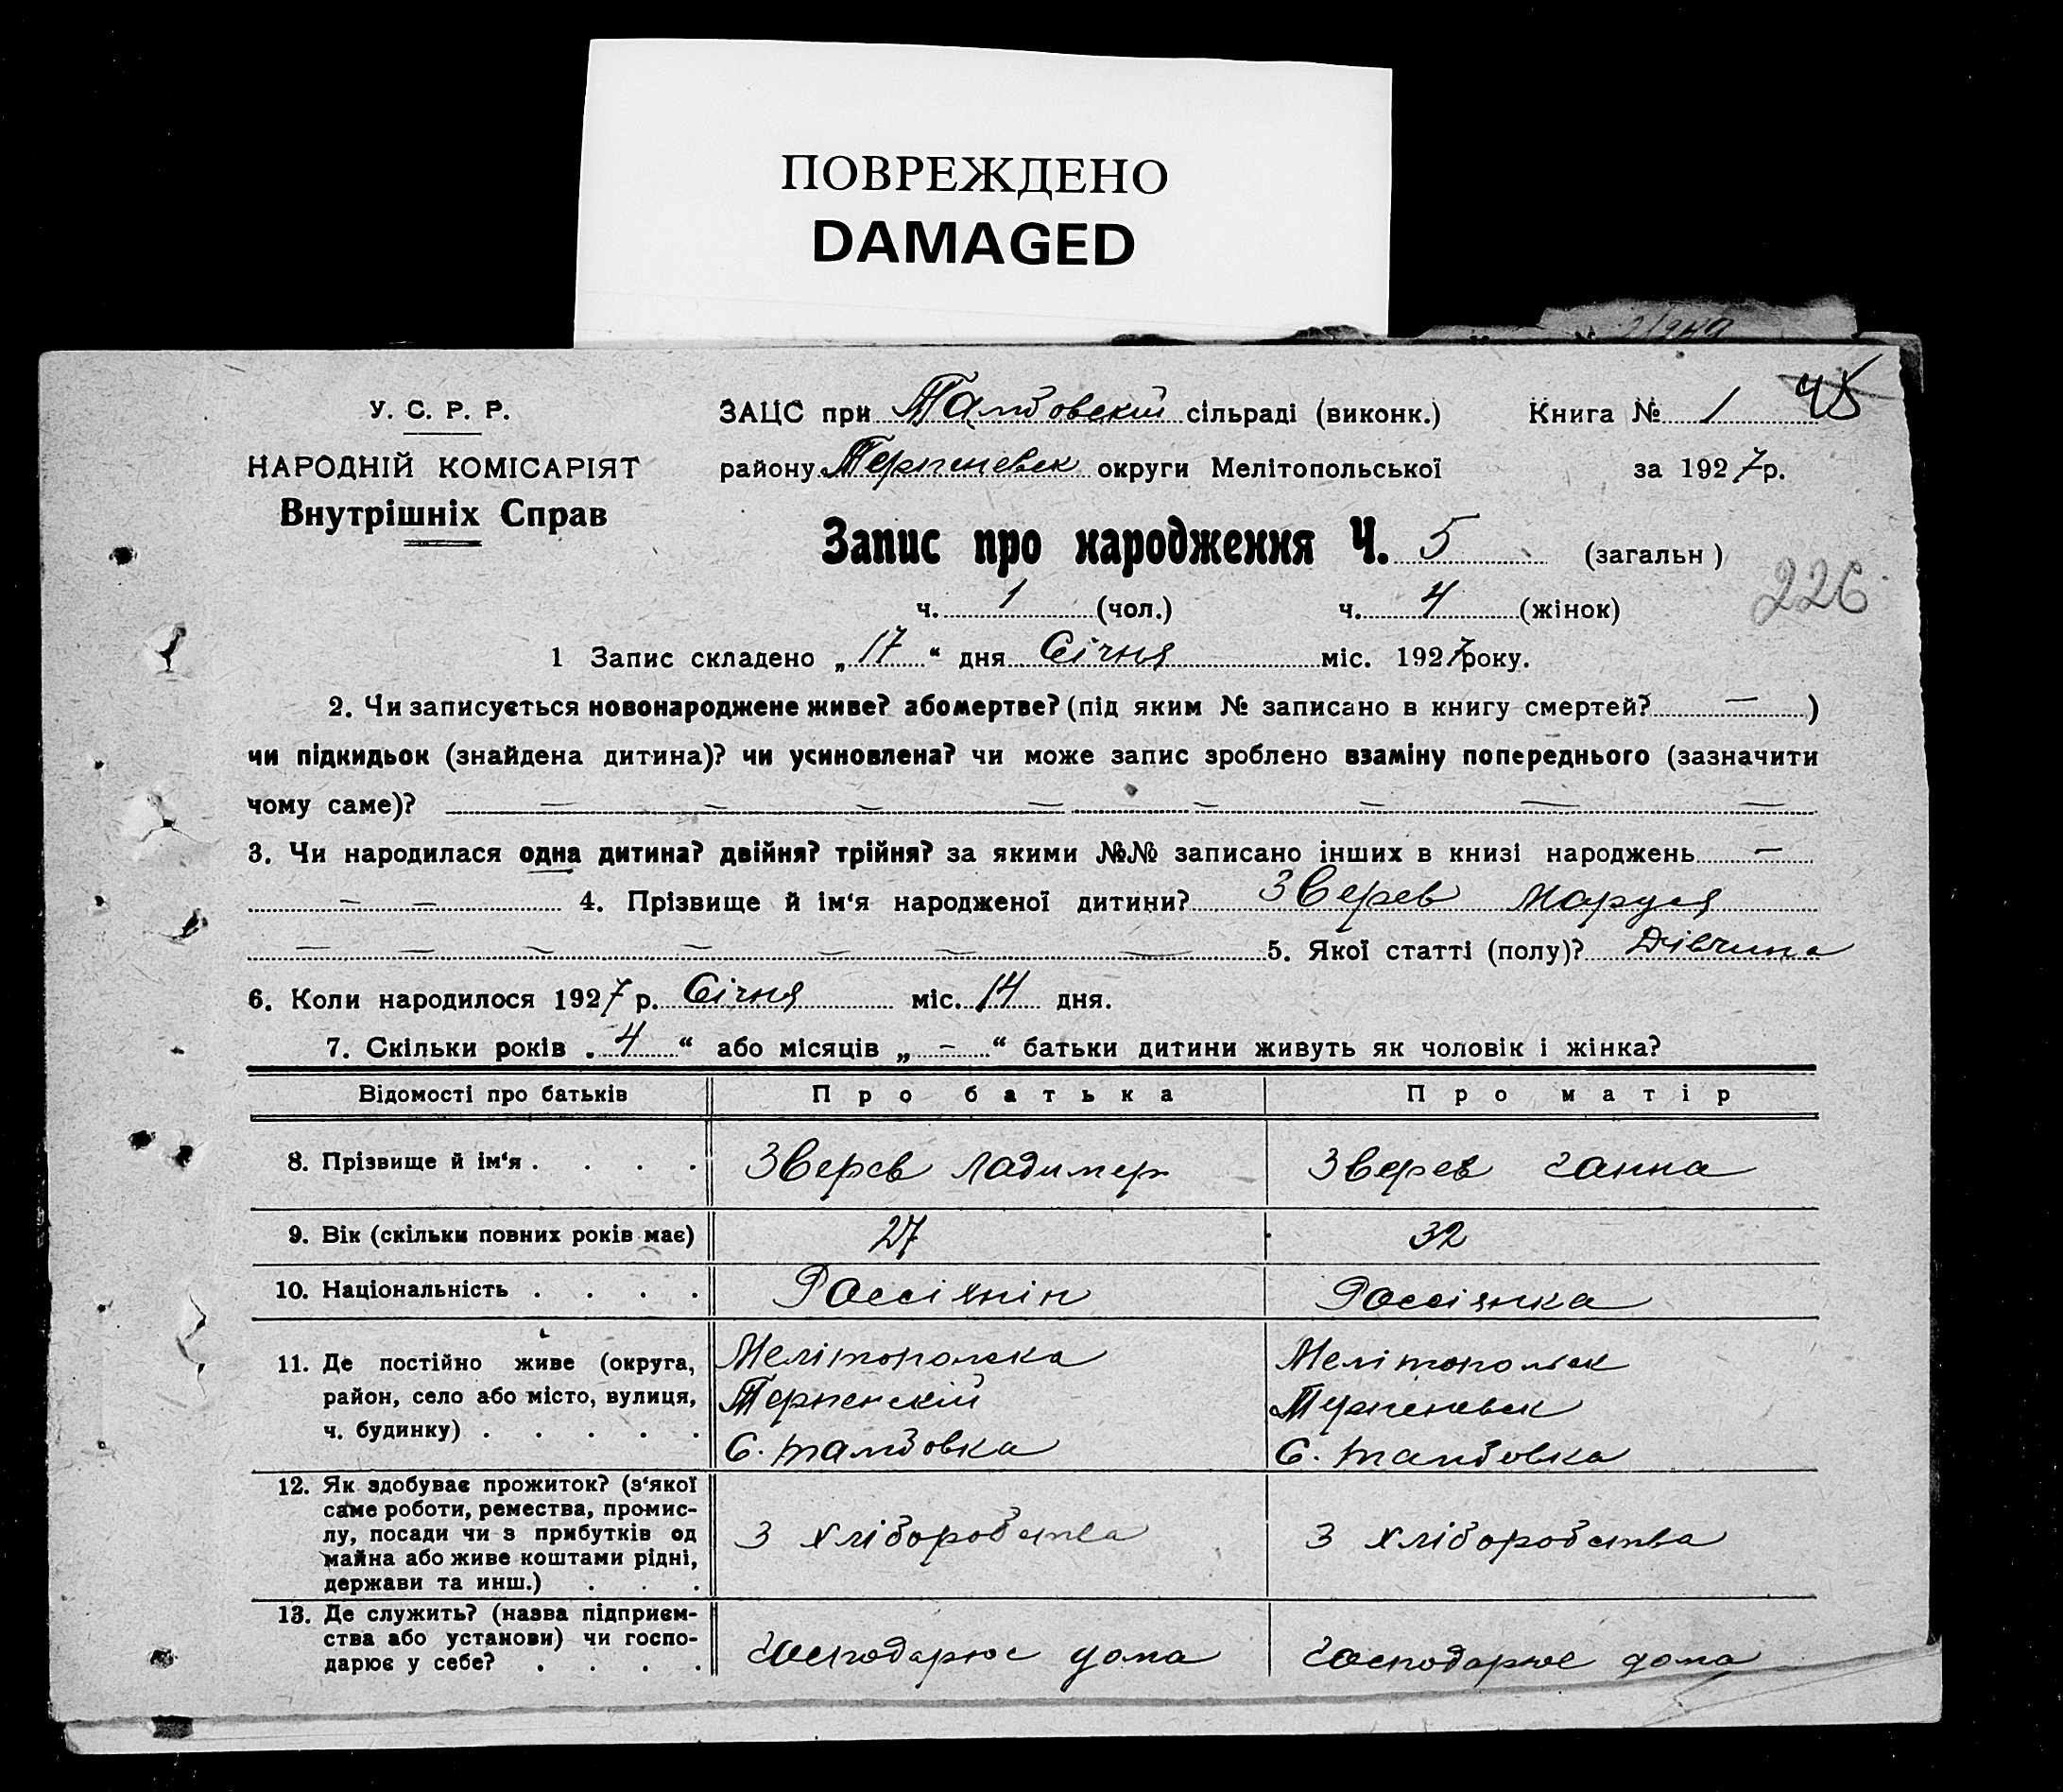 ПОВРЕЖДЕНО
DAMAGED
У. С. Р. Р.
НАРОДНІЙ КОМІСАРІЯТ
Внутрішніх Справ
ЗАЦС при Тамбовскій сільраді (виконк.) Книга № 1 45
району Терпеневск округи Мелітопольської за 1927 р.
Запис про народження Ч. 5 (загальн)
226
ч. 1 (чол.) ч. 4 (жінок)
1 Запис складено „17“ дня Січня міс. 1927 року.
2. Чи записується новонароджене живе? або мертве? (під яким № записано в книгу смертей? — )
чи підкидьок (знайдена дитина)? чи усиновлена? чи може запис зроблено взаміну попереднього (зазначити
чому саме)? — — — — — — — —
3. Чи народилася одна дитина? двійня? трійня? за якими №№ записано інших в книзі народжень —
— — 4. Прізвище й ім‘я народженої дитини? Зверев Маруся
— — — — — — — 5. Якої статті (полу)? Дівчина
6. Коли народилося 1927 р. Січня міс. 14 дня.
7. Скільки років „4“ або місяців „-“ батьки дитини живуть як чоловік і жінка?
Відомості про батьків Про батька Про матір
8. Прізвище й ім‘я . . . . Зверев Ладимер Зверев Ганна
9. Вік (скільки повних років має) 27 32
10. Національність . . . . Россіянін Россіянка
11. Де постійно живе (округа, Мелітополска Мелітопольск
район, село або місто, вулиця, Терпенскій Терпеневск
ч. будинку) . . . . . С. Тамбовка С. Тамбовка
12. Як здобуває прожиток? (з‘якої
саме роботи, ремества, промис-
лу, посади чи з прибутків од З хліборобства З хліборобства
майна або живе коштами рідні,
держави та инш.) . . .
13. Де служить? (назва підприєм-
ства або установи) чи госпо- Господарює дома Господарює дома
дарює у себе? . . . .